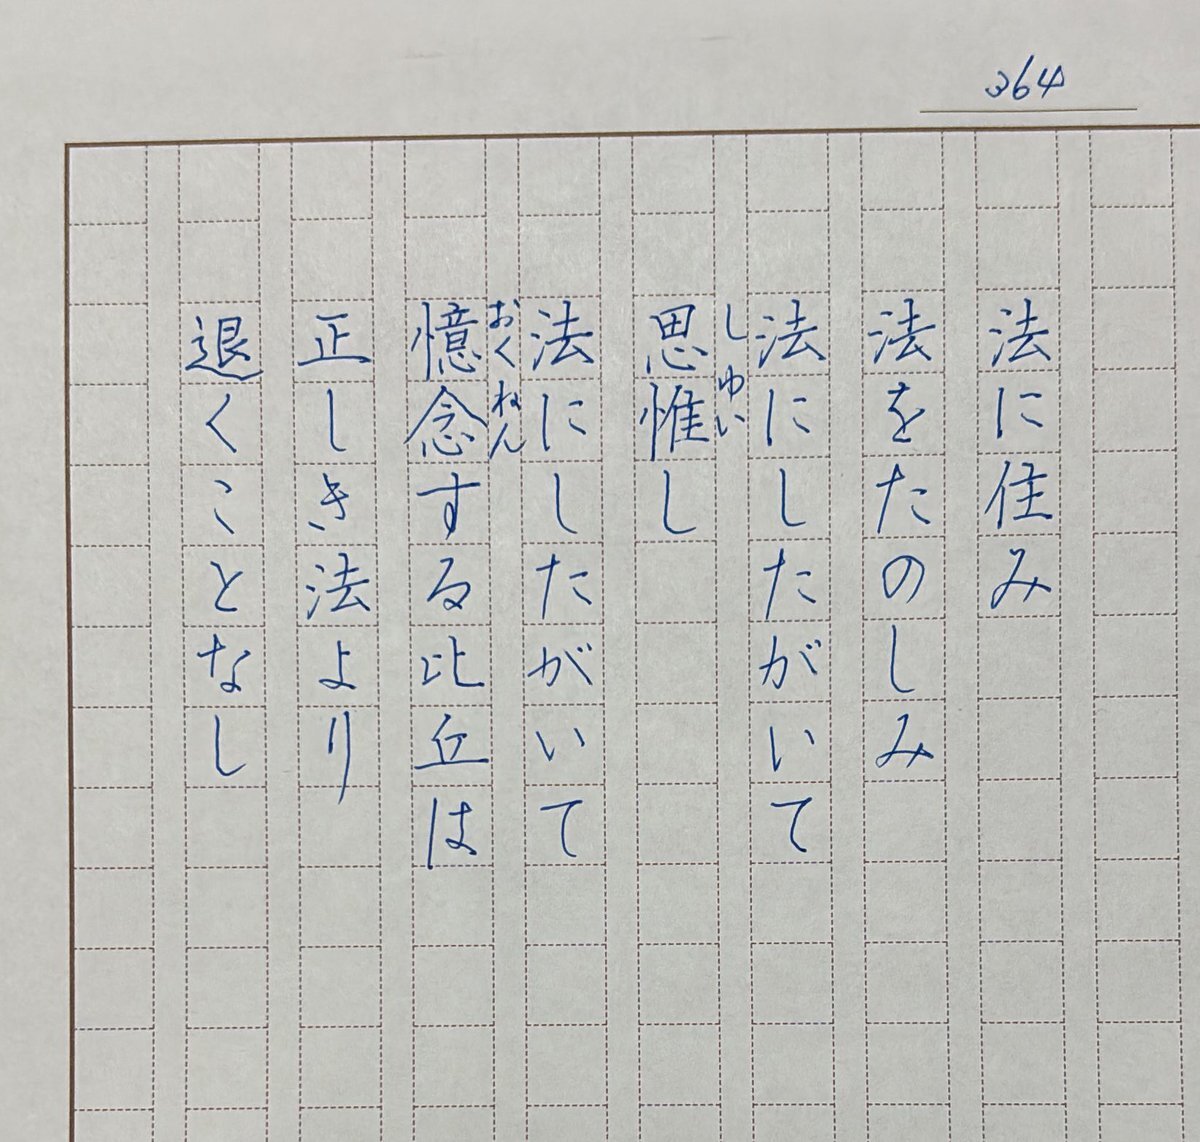 364
法に住み
法をたのしみ
法にしたがいて
思惟し
しゆい
法にしたがいて
憶念する比丘は
おくねん
正しき法より
退くことなし